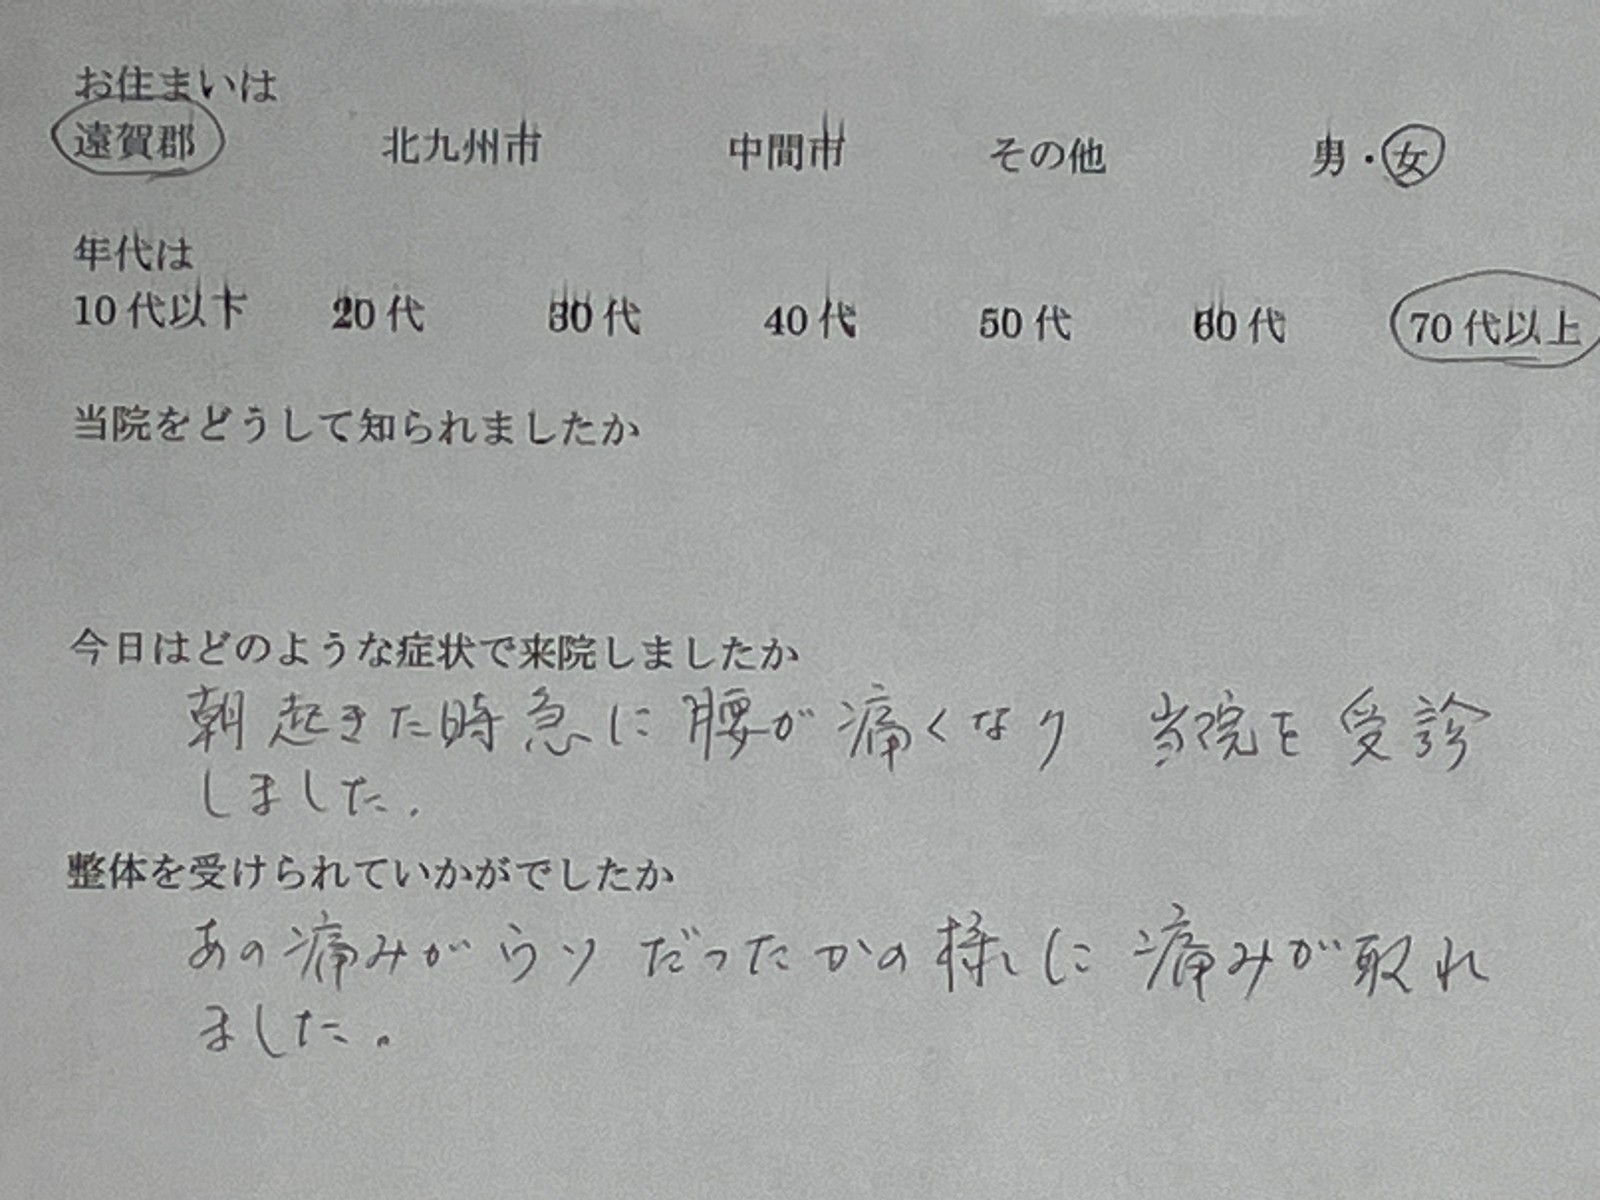 お住まいは
遠賀郡 北九州市 中間市 その他 男・女
年代は
10代以下 20代 30代 40代 50代 60代 70代以上
当院をどうして知られましたか
今日はどのような症状で来院しましたか
朝起きた時急に腰が痛くなり 当院を受診
しました.
整体を受けられていかがでしたか
あの痛みがウソだったかの様に痛みが取れ
ました。